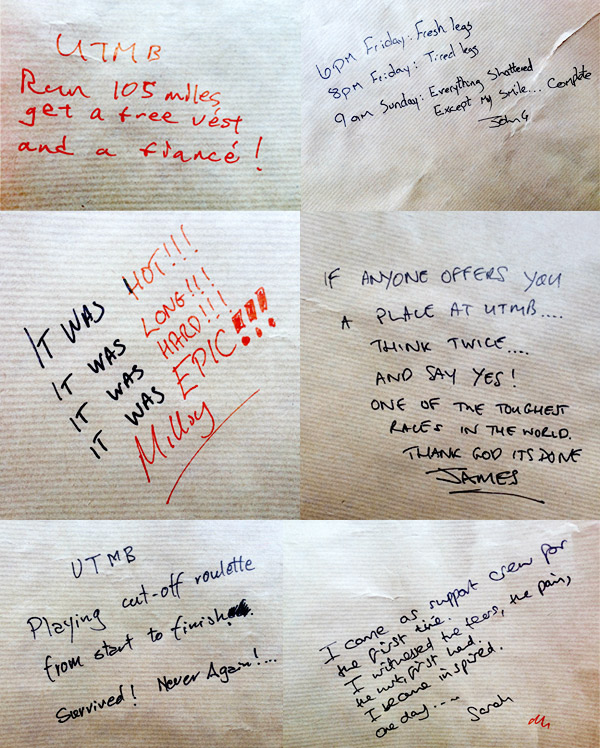 UTMB
Run 105 miles,
get a free vest
and a fiancé!
6pm Friday: Fresh legs
8pm Friday: Tired legs
9am Sunday: Everything Shattered
Except My Smile... Complete
John G
IT WAS HOT!!!
IT WAS LONG!!!
IT WAS HARD!!!
IT WAS EPIC!!!
Milloy
IF ANYONE OFFERS YOU
A PLACE AT UTMB....
THINK TWICE....
AND SAY YES!
ONE OF THE TOUGHEST
RACES IN THE WORLD.
THANK GOD ITS DONE
JAMES
UTMB
Playing cut-off roulette
from start to finish
Survived! Never Again!...
I came as support crew for
the first time.
I witnessed the tears, the pain,
the first hand.
I became inspired.
one day.....
Sarah